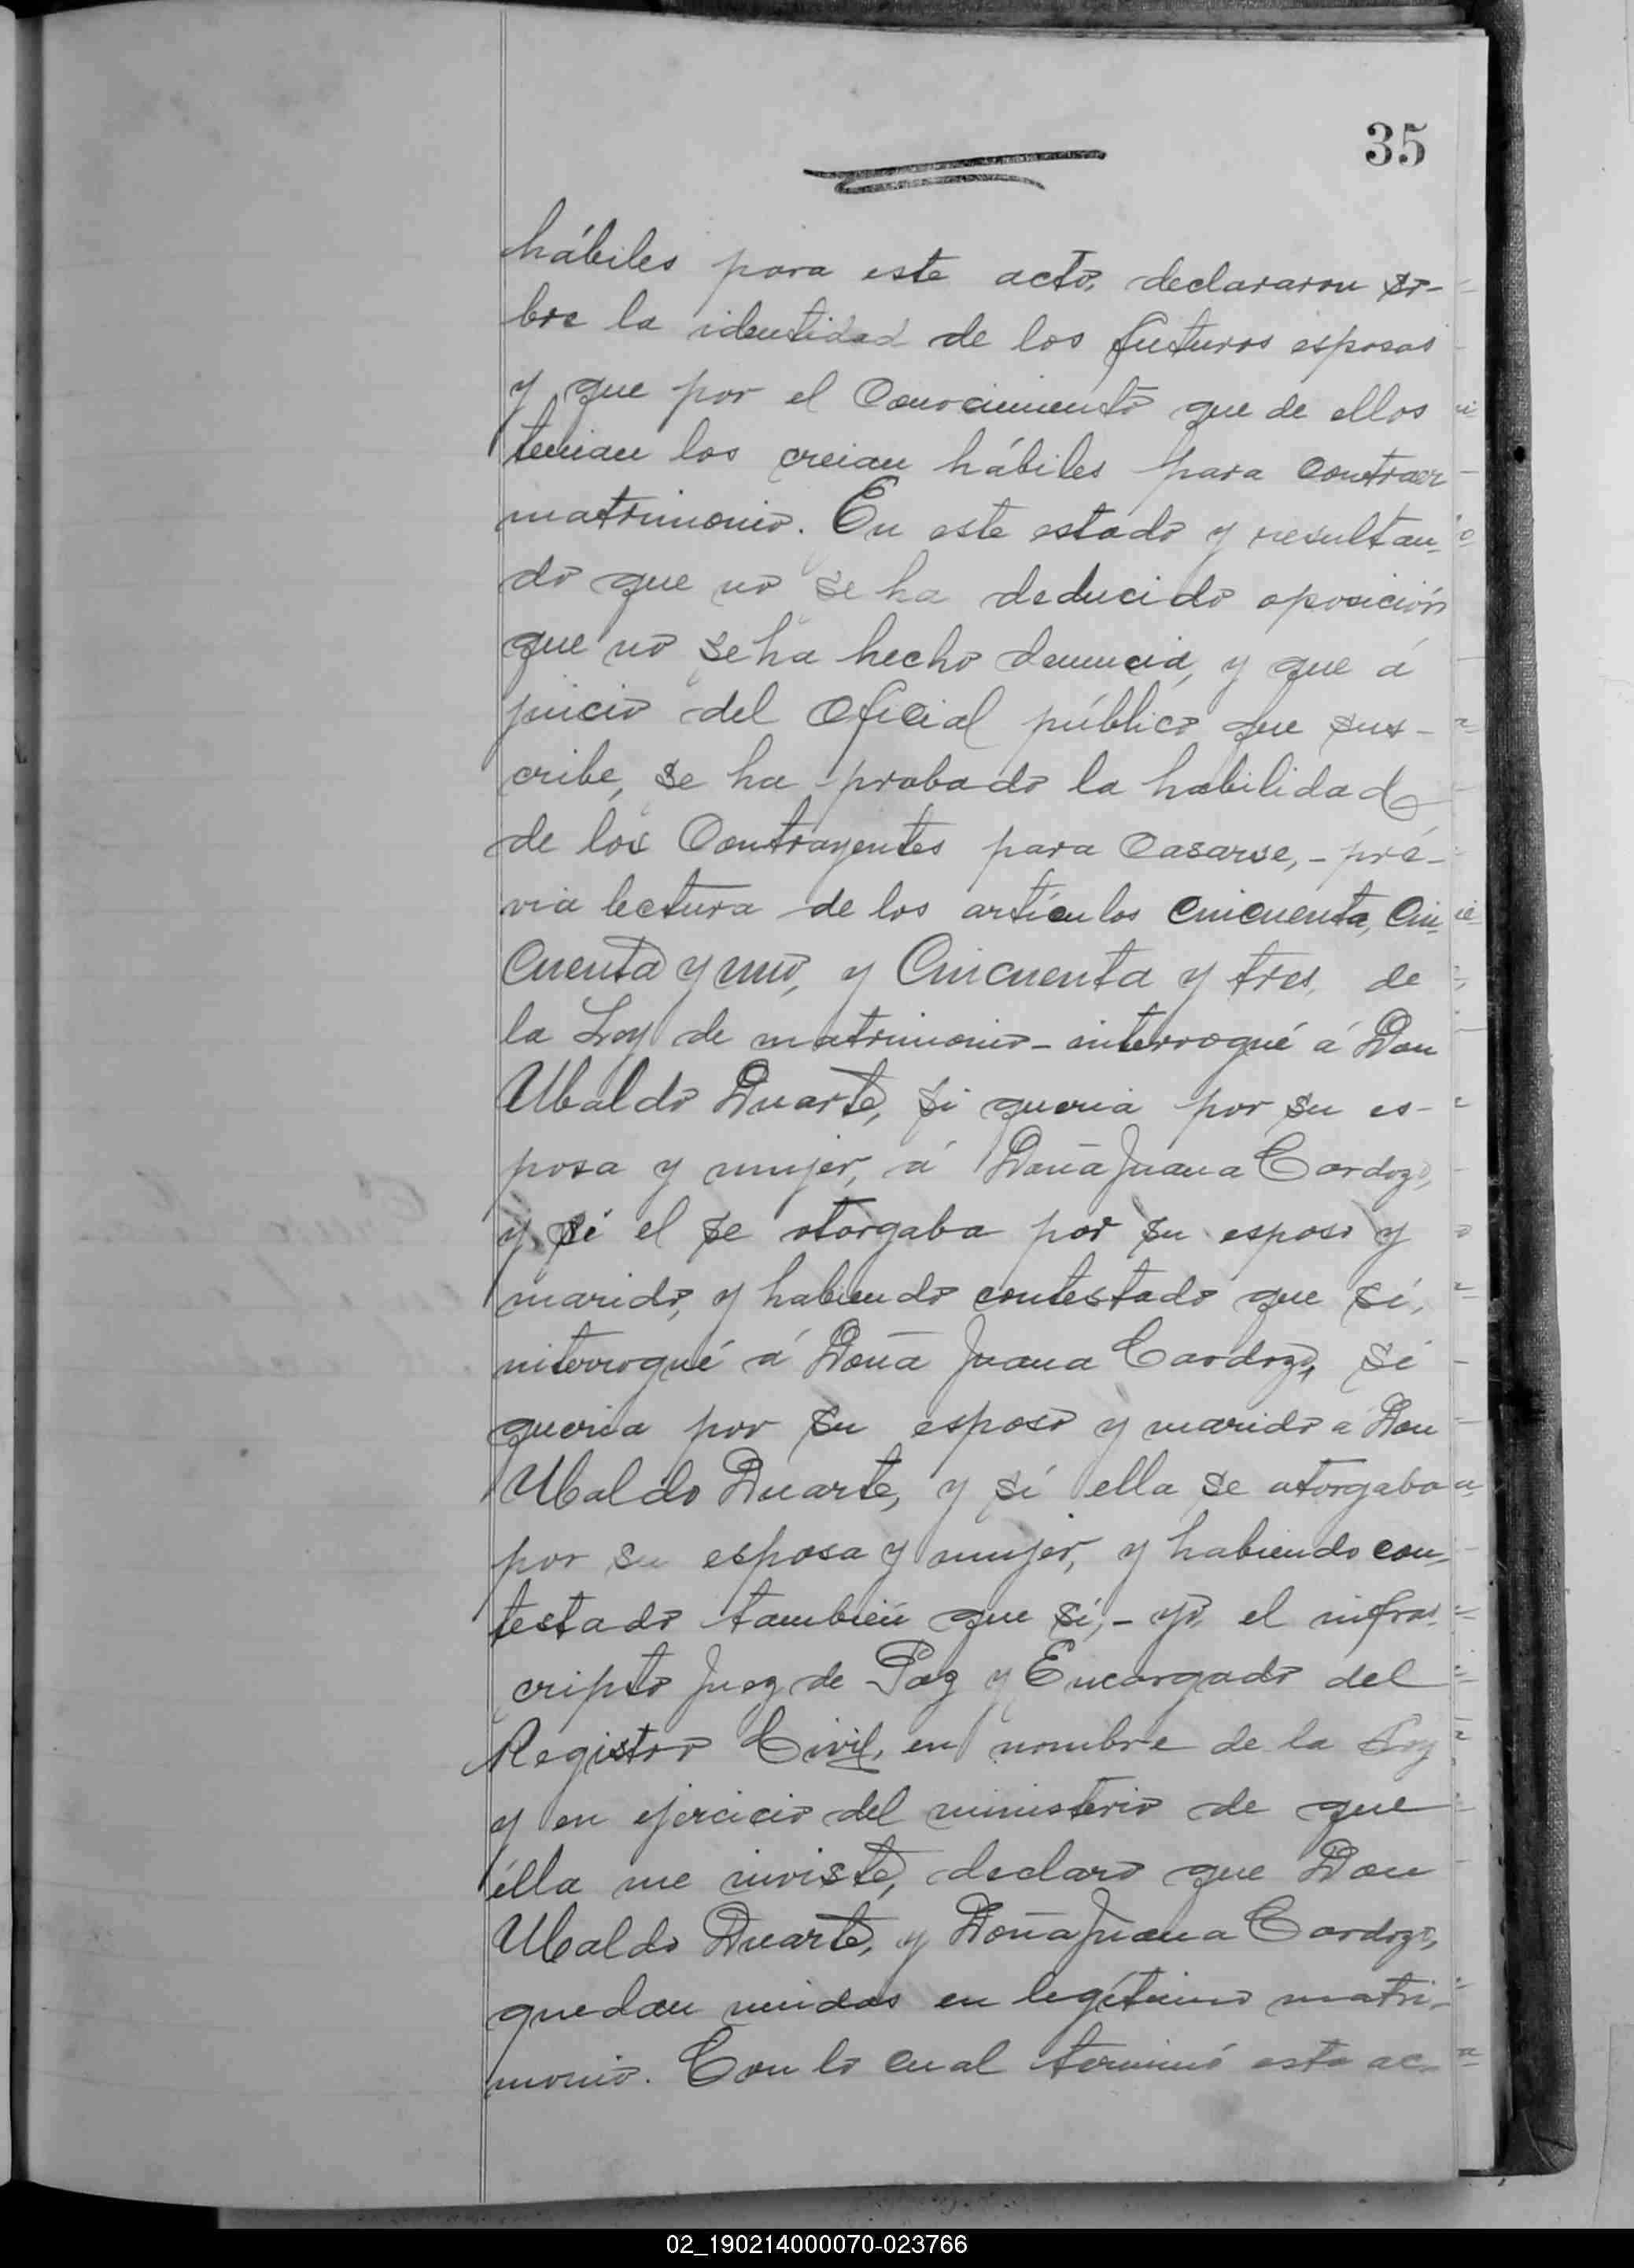 35
hábiles para este acto, declararon so-
bre la identidad de los futuros esposos
y que por el Conocimiento que de ellos
tenian los creian hábiles para contraer
matrimonio. En este estado y resultan-
do que no se ha deducido oposición
que no se ha hecho denuncia, y que á
juicio del Oficial público que sus-
cribe, se ha probado la habilidad
de los Contrayentes para Casarse, - pré-
via lectura de los artículos cincuenta, Cin-
cuenta y uno, y Cincuenta y tres, de
la Ley de matrimonio - interrogué á Don
Ubaldo Duarte, si queria por su es-
posa y mujer, á Doña Juana Cardozo,
y si el se otorgaba por su esposo y
marido, y habiendo contestado que sí,
interrogué á Doña Juana Cardozo, si
queria por su esposo y marido á Don
Ubaldo Duarte, y si ella se otorgaba
por su esposa y mujer, y habiendo con-
testado también que sí, - yo, el infras-
cripto Juez de Paz y Encargado del
Registro Civil, en nombre de la Ley
y en ejercicio del ministerio de que
élla me inviste, declaro que Don
Ubaldo Duarte, y Doña Juana Cardozo,
quedan unidos en legítimo matri-
monio. Con lo cual terminó este ac-
02_190214000070-023766